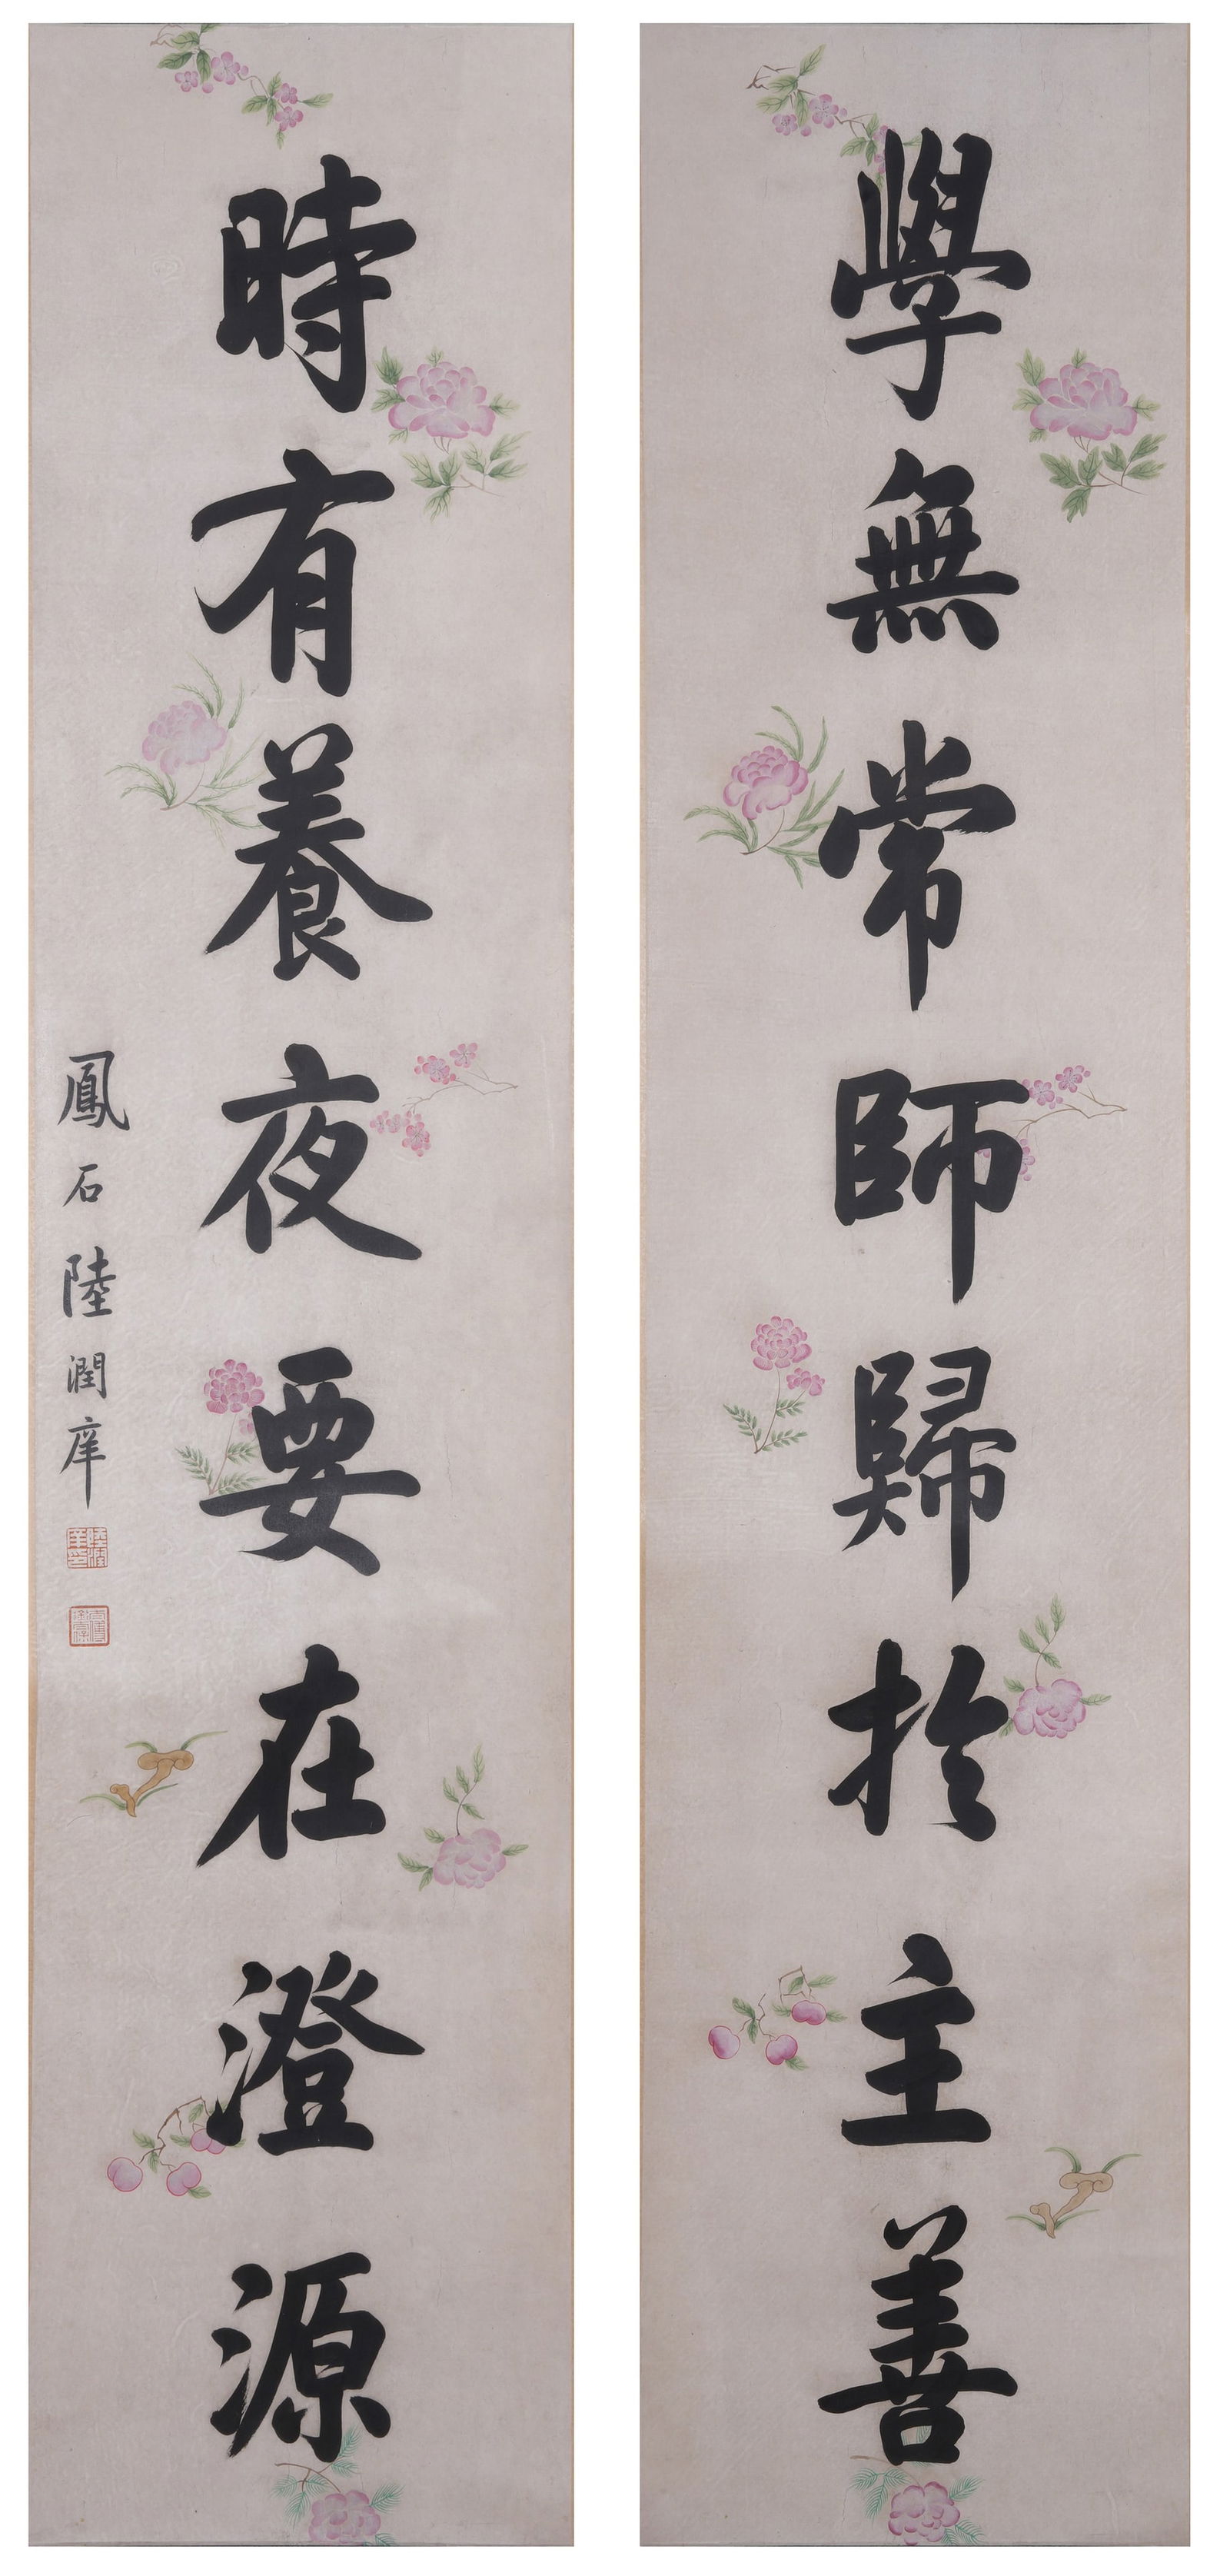 學無常師歸於主善
時有養夜要在澄源
鳳石陸潤庠